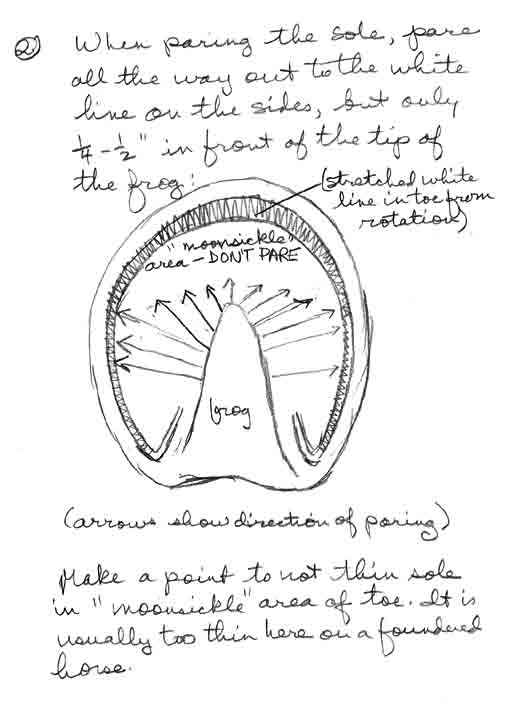 2) When paring the sole, pare
all the way out to the white
line on the sides, but only
1/4 - 1/2" in front of the tip of
the frog:
(stretched white
line in toe from
rotation)
"moonsickle"
area - DON'T PARE
frog
(arrows show direction of paring)
Make a point to not thin sole
in "moonsickle" area of toe. It is
usually too thin here on a foundered
horse.